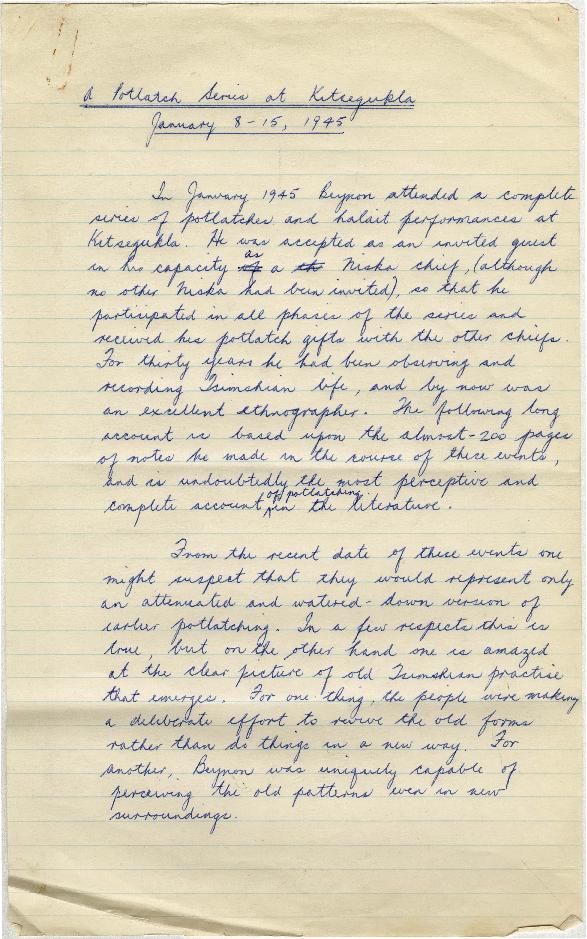 A Potlatch Series at Kitsegukla
January 8-15, 1945
In January 1945 Beynon attended a complete
series of potlatches and halait performances at
Kitsegukla. He was accepted as an invited guest
in his capacity as a Niska chief, (although
no other Niska had been invited), so that he
participated in all phases of the series and
received his potlatch gifts with the other chiefs.
For thirty years he had been observing and
recording Tsimshian life, and by now was
an excellent ethnographer. The following long
account is based upon the almost-200 pages
of notes he made in the course of these events,
and is undoubtedly the most perceptive and
complete account of potlatching in the literature.
From the recent date of these events one
might suspect that they would represent only
an attenuated and watered-down version of
earlier potlatching. In a few respects this is
true, but on the other hand one is amazed
at the clear picture of old Tsimshian practise
that emerges. For one thing, the people were making
a deliberate effort to revive the old forms
rather than do things in a new way. For
another, Beynon was uniquely capable of
perceiving the old patterns even in new
surroundings.